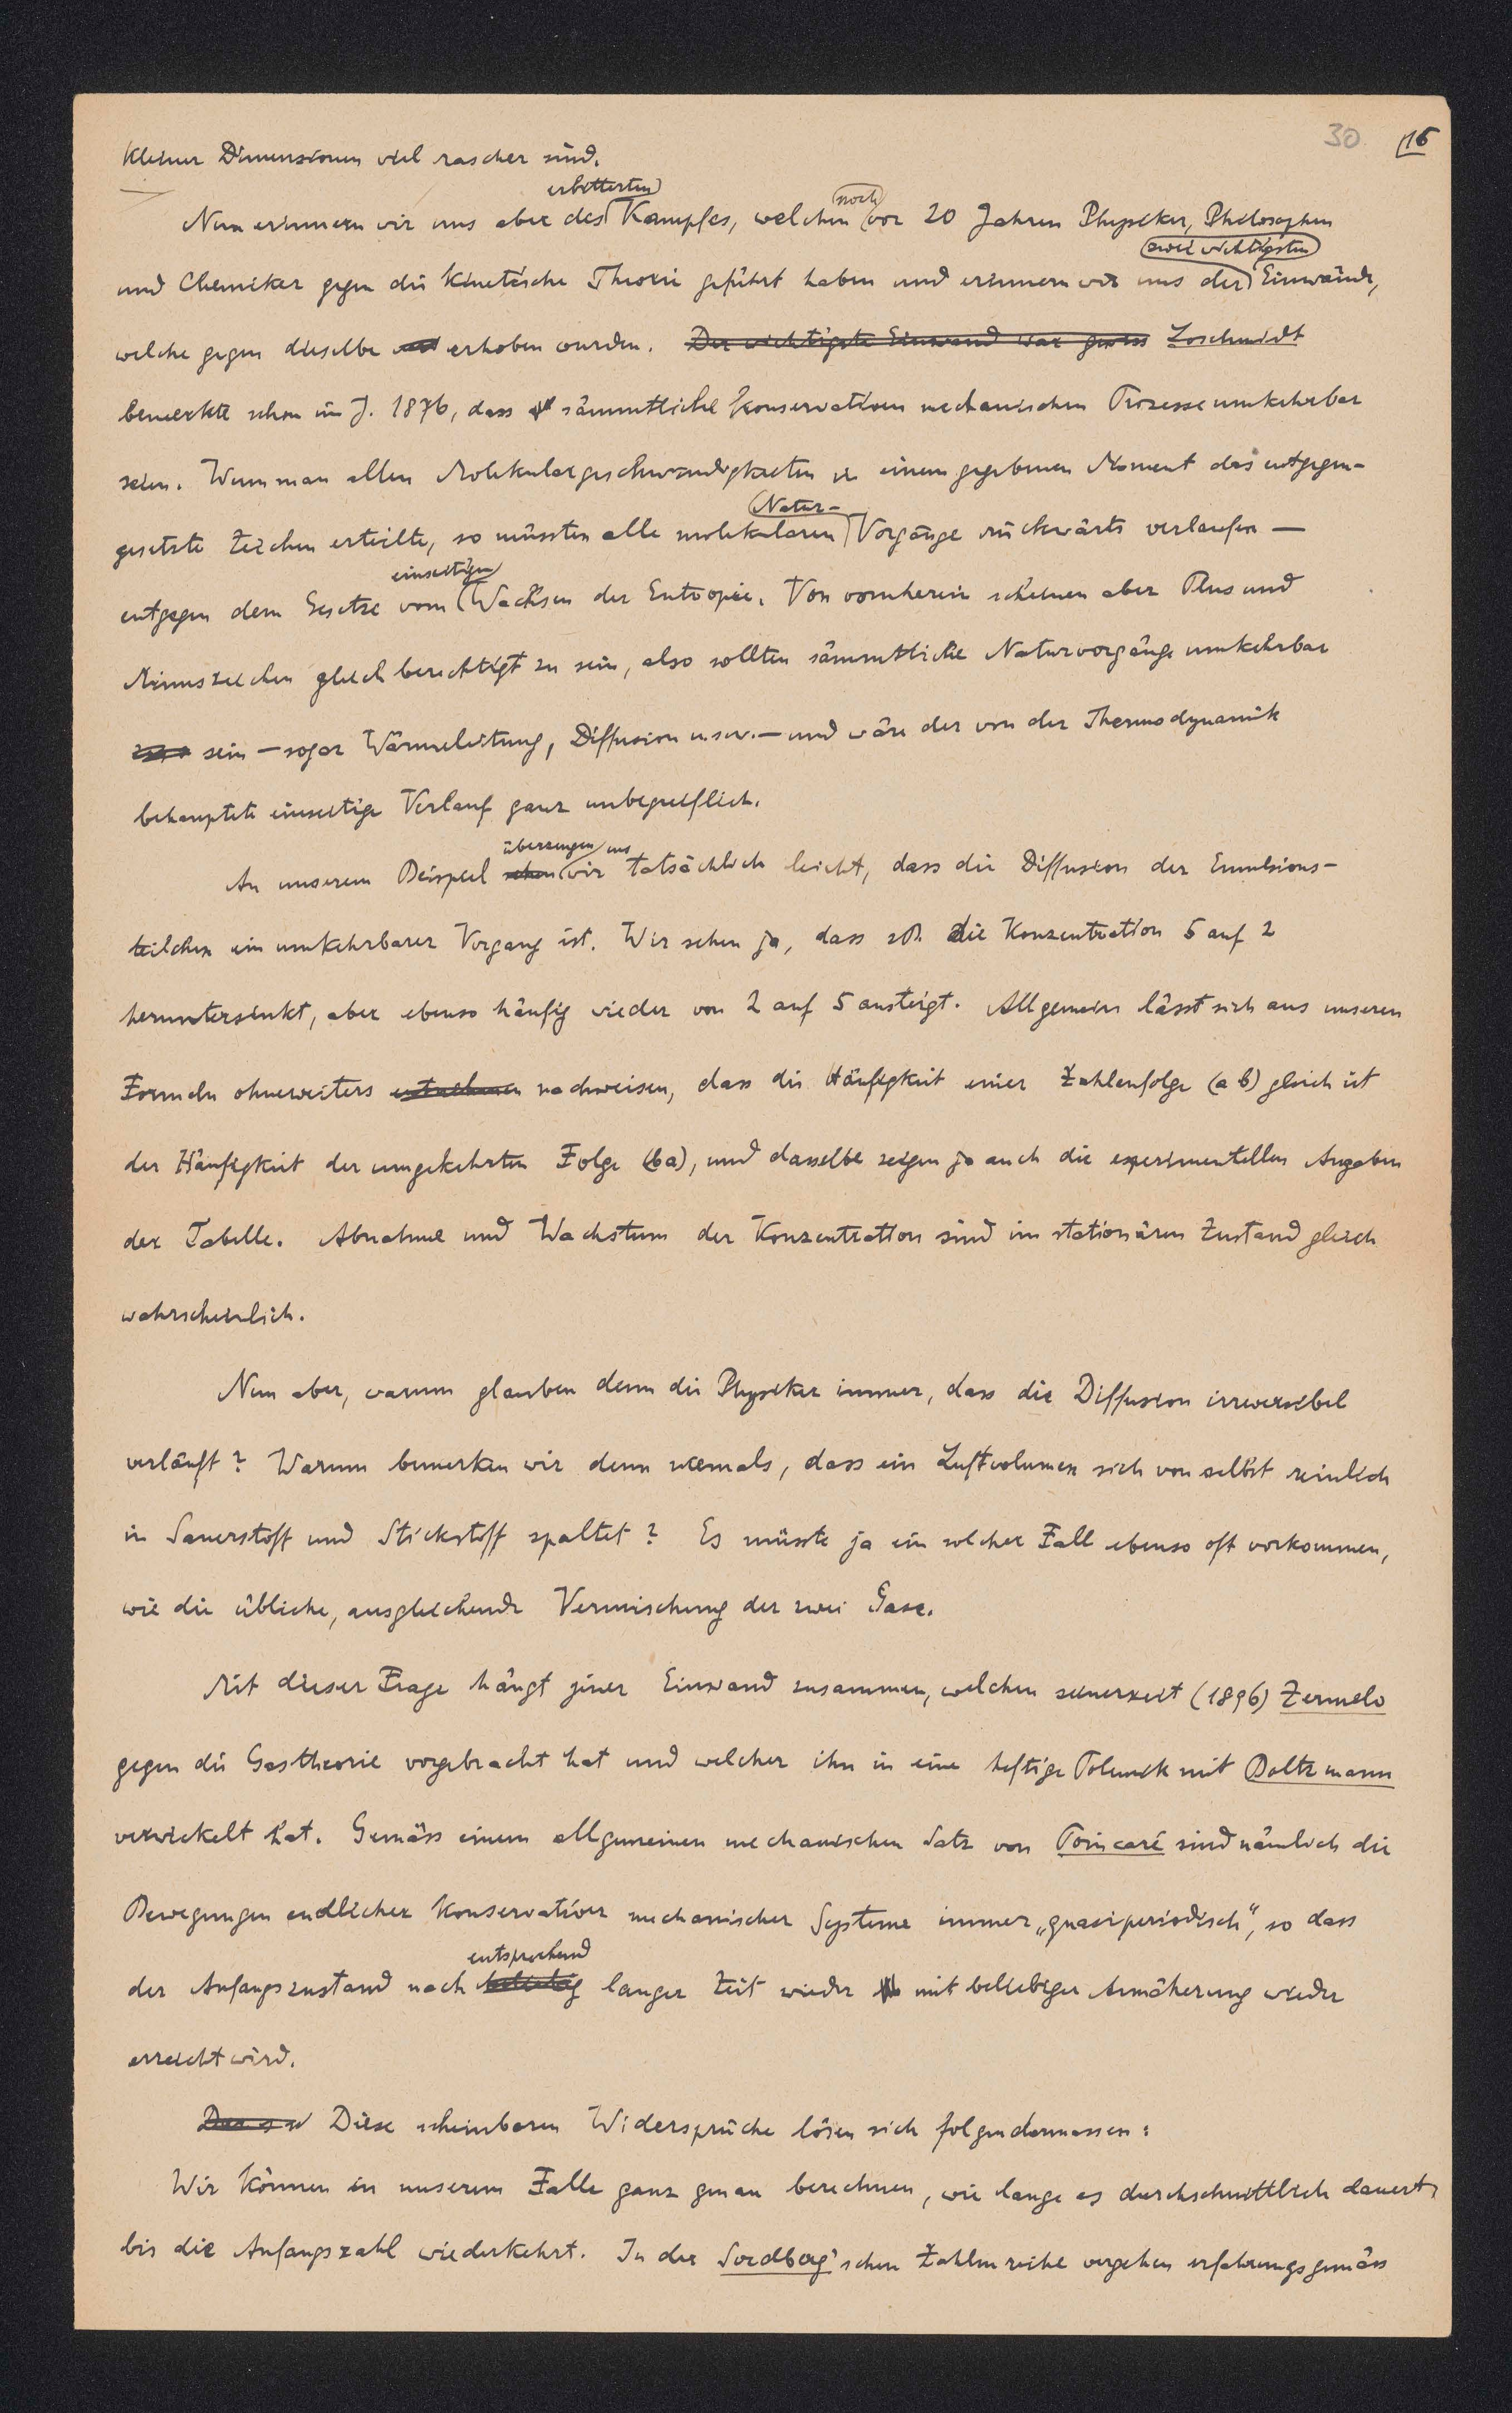 30 16
kleiner Dimensionen viel rascher sind.
erbitterten noch
Nun erinnern wir uns aber des Kampfes, welchen vor 20 Jahren Physiker, Philosophen
zwei wichtigsten
und Chemiker gegen die kinetische Theorie geführt haben und erinnern wir uns der Einwände,
welche gegen dieselbe erhoben wurden. Der wichtigste Einwand war gewiss Loschmidt
bemerkte schon im J. 1876, dass sämmtliche konservativen mechanischen Prozesse umkehrbar
seien. Wenn man allen Molekulargeschwindigkeiten in einem gegebenen Moment das entgegen-
Natur-
gesetzte Zeichen erteilte, so müssten alle molekularen Vorgänge rückwärts verlaufen —
einseitigen
entgegen dem Gesetze vom Wachsen der Entropie. Von vornherein scheinen aber Plus und
Minuszeichen gleichberechtigt zu sein, also sollten sämmtliche Naturvorgänge umkehrbar
sein — sogar Wärmeleitung, Diffusion u.s.w. — und wäre der von der Thermodynamik
behauptete einseitige Verlauf ganz unbegreiflich.
überzeugen uns
An unserem Beispiel sehen wir tatsächlich leicht, dass die Diffusion der Emulsions-
teilchen ein umkehrbarer Vorgang ist. Wir sehen ja, dass zB. die Konzentration 5 auf 2
heruntersinkt, aber ebenso häufig wieder von 2 auf 5 ansteigt. Allgemein lässt sich aus unseren
Formeln ohneweiters entnehmen nachweisen, dass die Häufigkeit einer Zahlenfolge (a b) gleich ist
der Häufigkeit der umgekehrten Folge (ba), und dasselbe zeigen ja auch die experimentellen Angaben
der Tabelle. Abnahme und Wachstum der Konzentration sind im stationären Zustand gleich
wahrscheinlich.
Nun aber, warum glauben denn die Physiker immer, dass die Diffusion irreversibel
verläuft? Warum bemerken wir denn niemals, dass ein Luftvolumen sich von selbst reinlich
in Sauerstoff und Stickstoff spaltet? Es müsste ja ein solcher Fall ebenso oft vorkommen,
wie die übliche, ausgleichende Vermischung der zwei Gase.
Mit dieser Frage hängt jener Einwand zusammen, welchen seinerzeit (1896) Zermelo
gegen die Gastheorie vorgebracht hat und welcher ihn in eine heftige Polemik mit Boltzmann
verwickelt hat. Gemäss einem allgemeinen mechanischen Satz von Poincaré sind nämlich die
Bewegungen endlicher konservativer mechanischer Systeme immer „quasiperiodisch", so dass
entsprechend
der Anfangszustand nach beliebig langer Zeit wieder mit beliebiger Annäherung wieder
erreicht wird.
Diese scheinbaren Widersprüche lösen sich folgendermassen:
Wir können in unserem Falle ganz genau berechnen, wie lange es durchschnittlich dauert,
bis die Anfangszahl wiederkehrt. In der Svedberg'schen Zahlenreihe vergehen erfahrungsgemäss